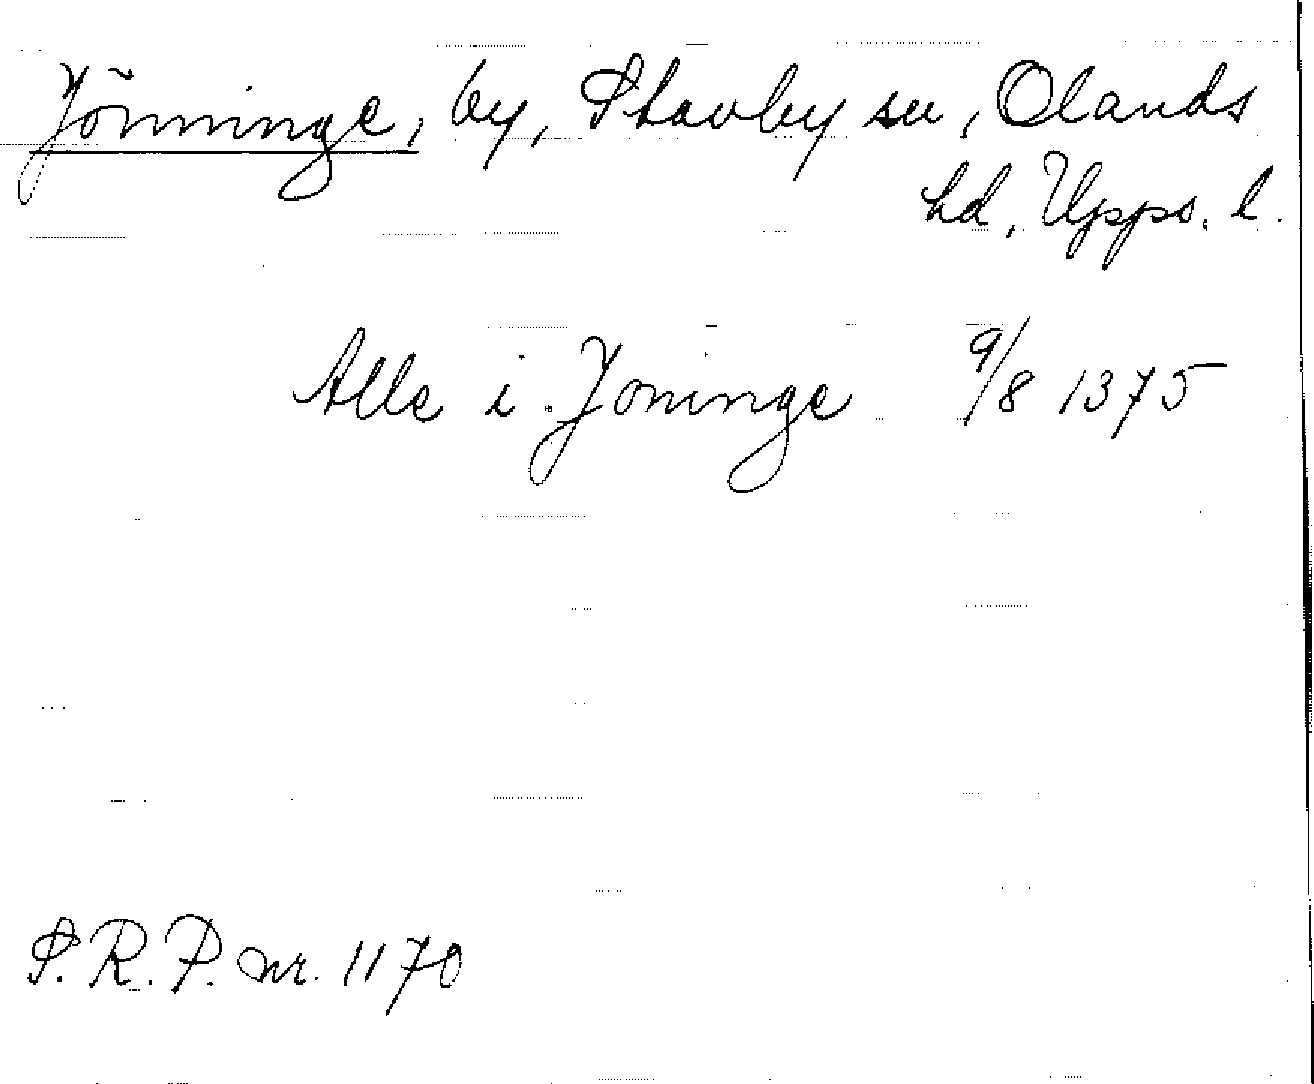 Jönninge, by, Stavby sn, Olands
hd, Upps. l.
Alle i Joninge 9/8 1375
S.R.P. nr. 1170